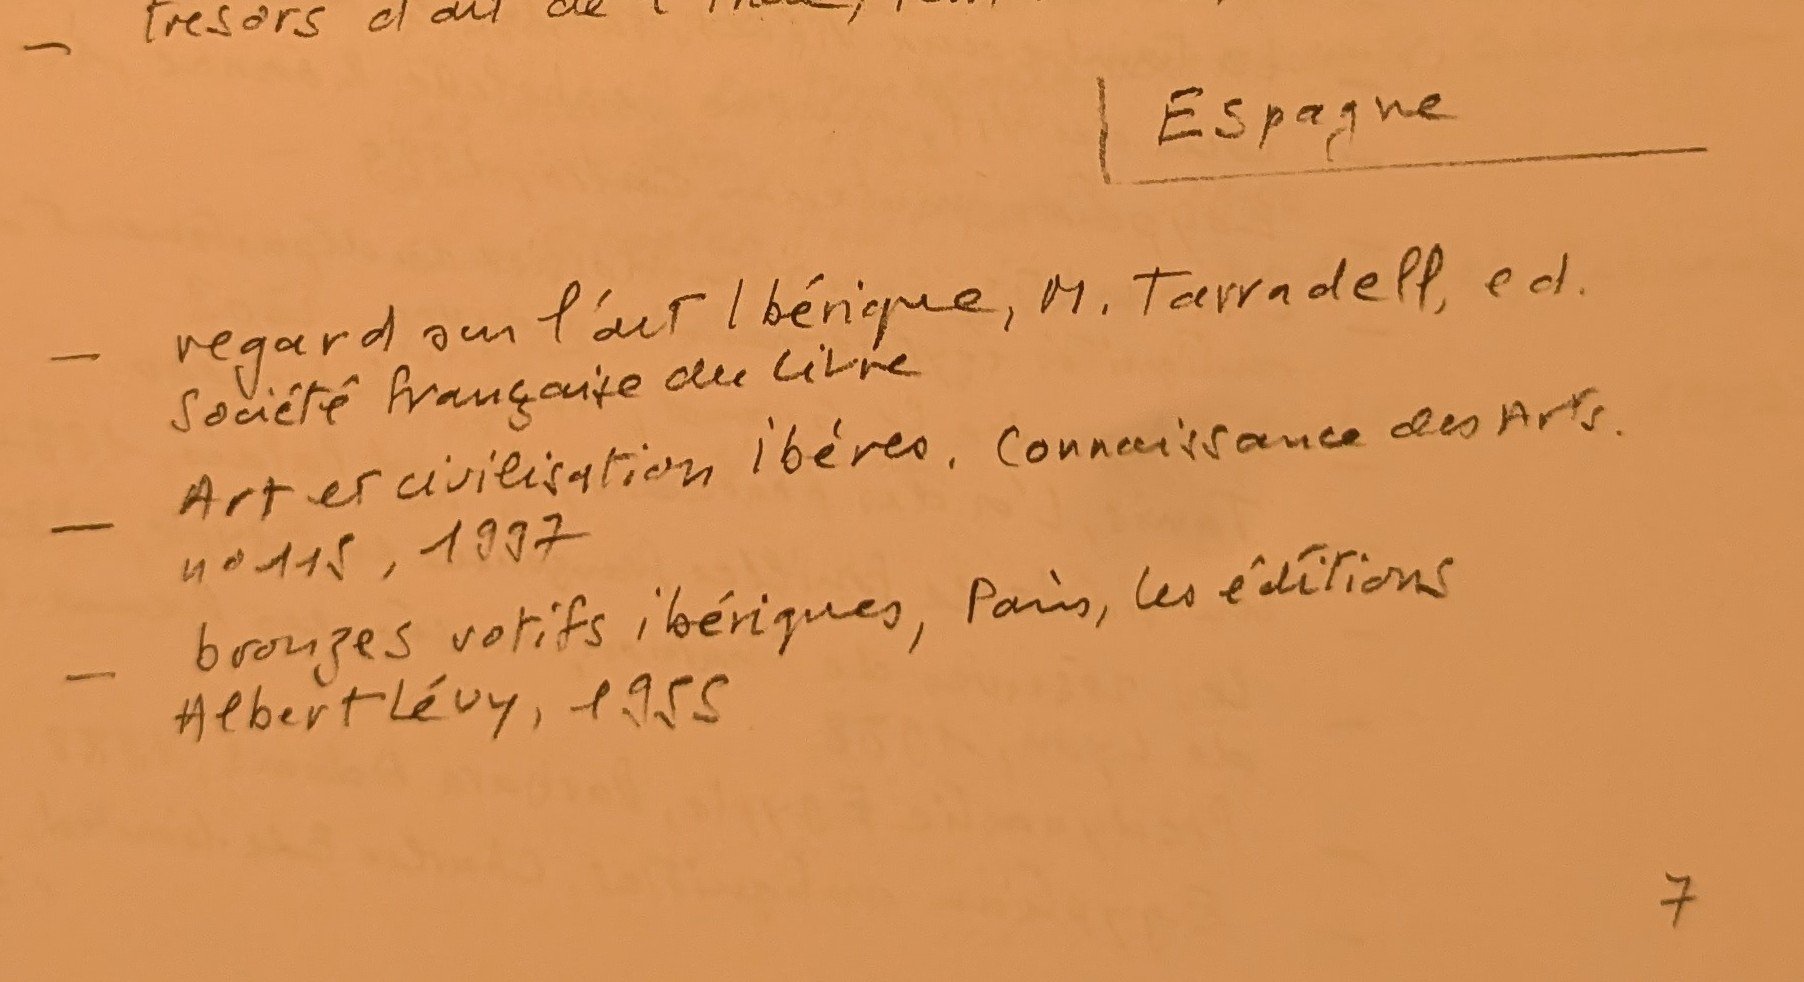 — Tresors d'art de l'
Espagne
— regard sur l'art Ibérique, M. Tarradell, ed.
Société française du Livre
— Art et civilisation ibéres. Connaissance des Arts.
n° 115, 1997
— bronzes votifs ibériques, Paris, les éditions
Albert Lévy, 1955
7